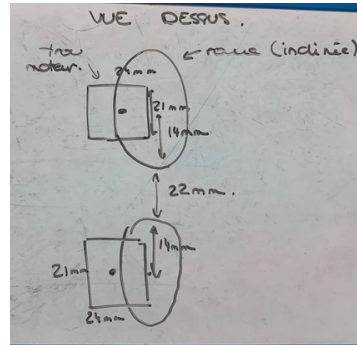 VUE DESSUS.
trou
moteur.
24mm
roue (inclinée)
21mm
14mm
22mm.
14mm
21mm
24mm